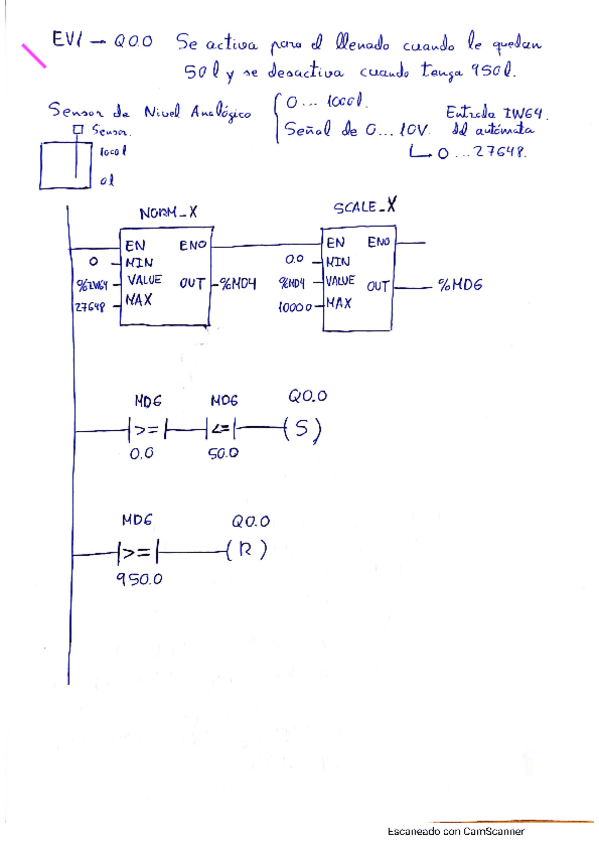 EV1 → Q0.0 Se activa para el llenado cuando le quedan
50 l y se desactiva cuando tenga 950 l.
Sensor de Nivel Analógico
0... 1000 l.
Señal de 0... 10V.
Entrada IW64.
del autómata
0... 27648.
Sensor.
1000 l
0 l
NORM_X
SCALE_X
EN ENO
EN ENO
0 MIN
0.0 MIN
%IW64 VALUE OUT %MD4
%MD4 VALUE OUT %MD6
27648 MAX
1000.0 MAX
MD6 MD6 Q0.0
>= <= (S)
0.0 50.0
MD6 Q0.0
>= (R)
950.0
Escaneado con CamScanner